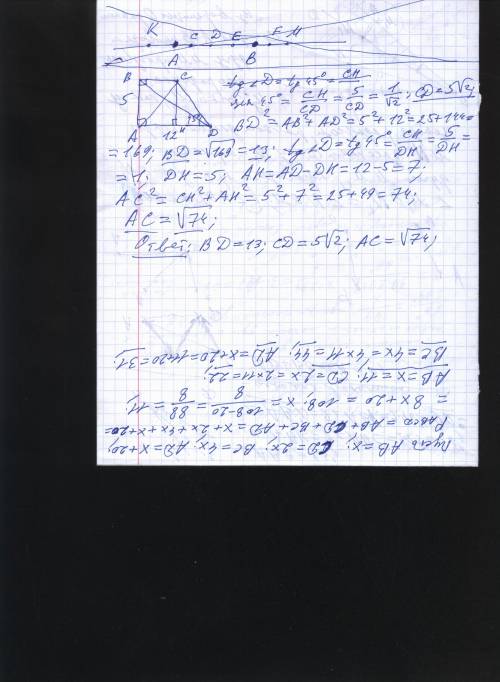 K
C D E F M
A B
B C
5
A 12 H D
tg∠D = tg 45° = CH
sin 45° = CH/CD = 5/CD = 1/√2; CD = 5√2;
BD² = AB² + AD² = 5² + 12² = 25 + 144 =
= 169; BD = √169 = 13; tg∠D = tg 45° = CH/DH = 5/DH =
= 1; DH = 5; AH = AD - DH = 12 - 5 = 7;
AC² = CH² + AH² = 5² + 7² = 25 + 49 = 74;
AC = √74;
Ответ: BD = 13; CD = 5√2; AC = √74;
Пусть AB = x; CD = 2x; BC = 4x; AD = x + 20;
PABCD = AB + CD + BC + AD = x + 2x + 4x + x + 20 =
= 8x + 20 = 108; x = 108-20/8 = 88/8 = 11;
AB = x = 11; CD = 2x = 2×11 = 22;
BC = 4x = 4×11 = 44; AD = x + 20 = 11 + 20 = 31;